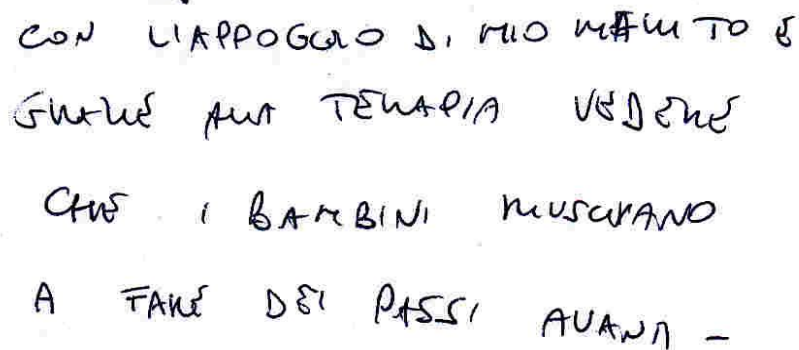 CON L'APPOGGIO DI MIO MARITO E
GRAZIE ALLA TERAPIA VEDERE
CHE I BAMBINI RIUSCIVANO
A FARE DEI PASSI AVANTI -